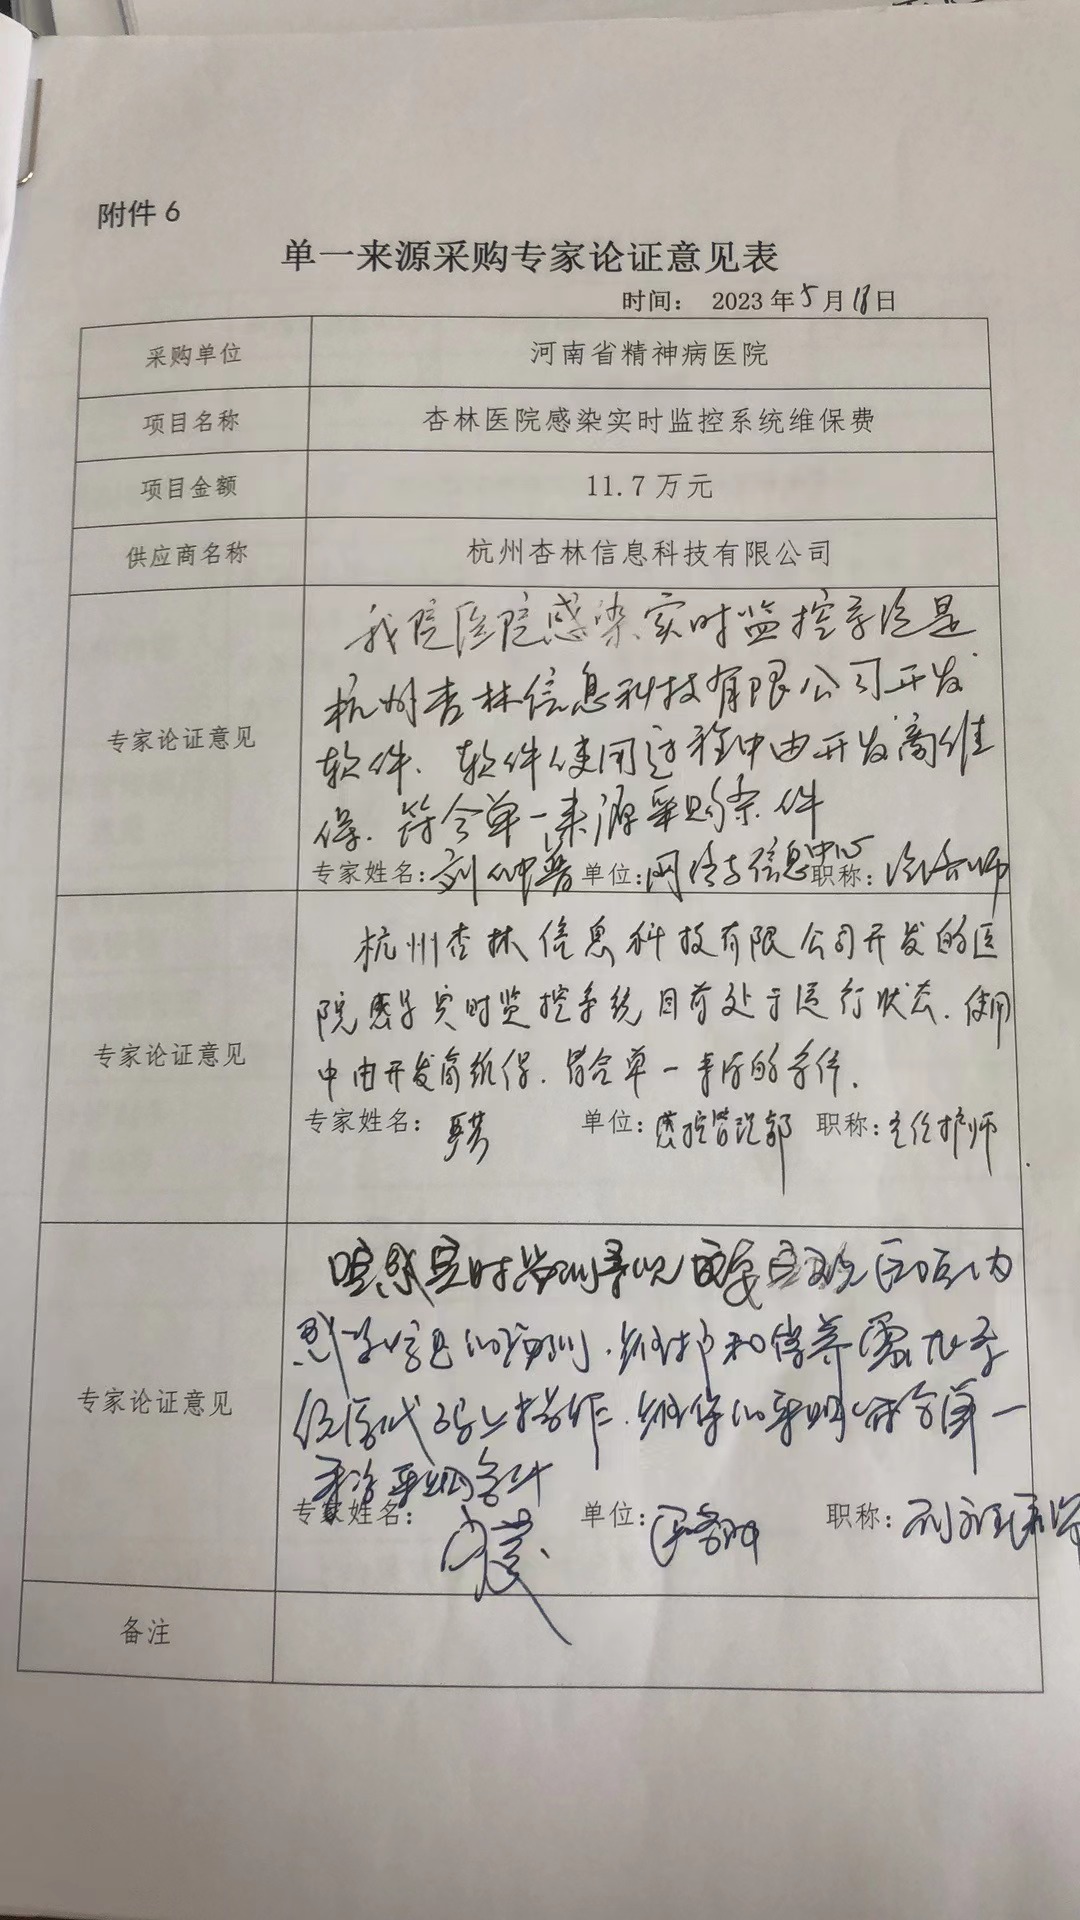 附件6
单一来源采购专家论证意见表
时间： 2023年5月18日
采购单位 河南省精神病医院
项目名称 杏林医院感染实时监控系统维保费
项目金额 11.7万元
供应商名称 杭州杏林信息科技有限公司
专家论证意见
我院医院感染实时监控系统是
杭州杏林信息科技有限公司开发
软件、软件使用过程中由开发商维
保.符合单一来源采购条件
专家姓名: 单位:网络与信息中心 职称:
专家论证意见
杭州杏林信息科技有限公司开发的医
院感染实时监控系统目前处于运行状态.使用
中由开发商维保.符合单一来源的条件.
专家姓名: 单位:感控管理部 职称:主任护师
专家论证意见
实时
感染信息的 .维护和保养需
代码上操作.维保的采购符合单一
来源采购条件
专家姓名: 单位: 职称:
备注